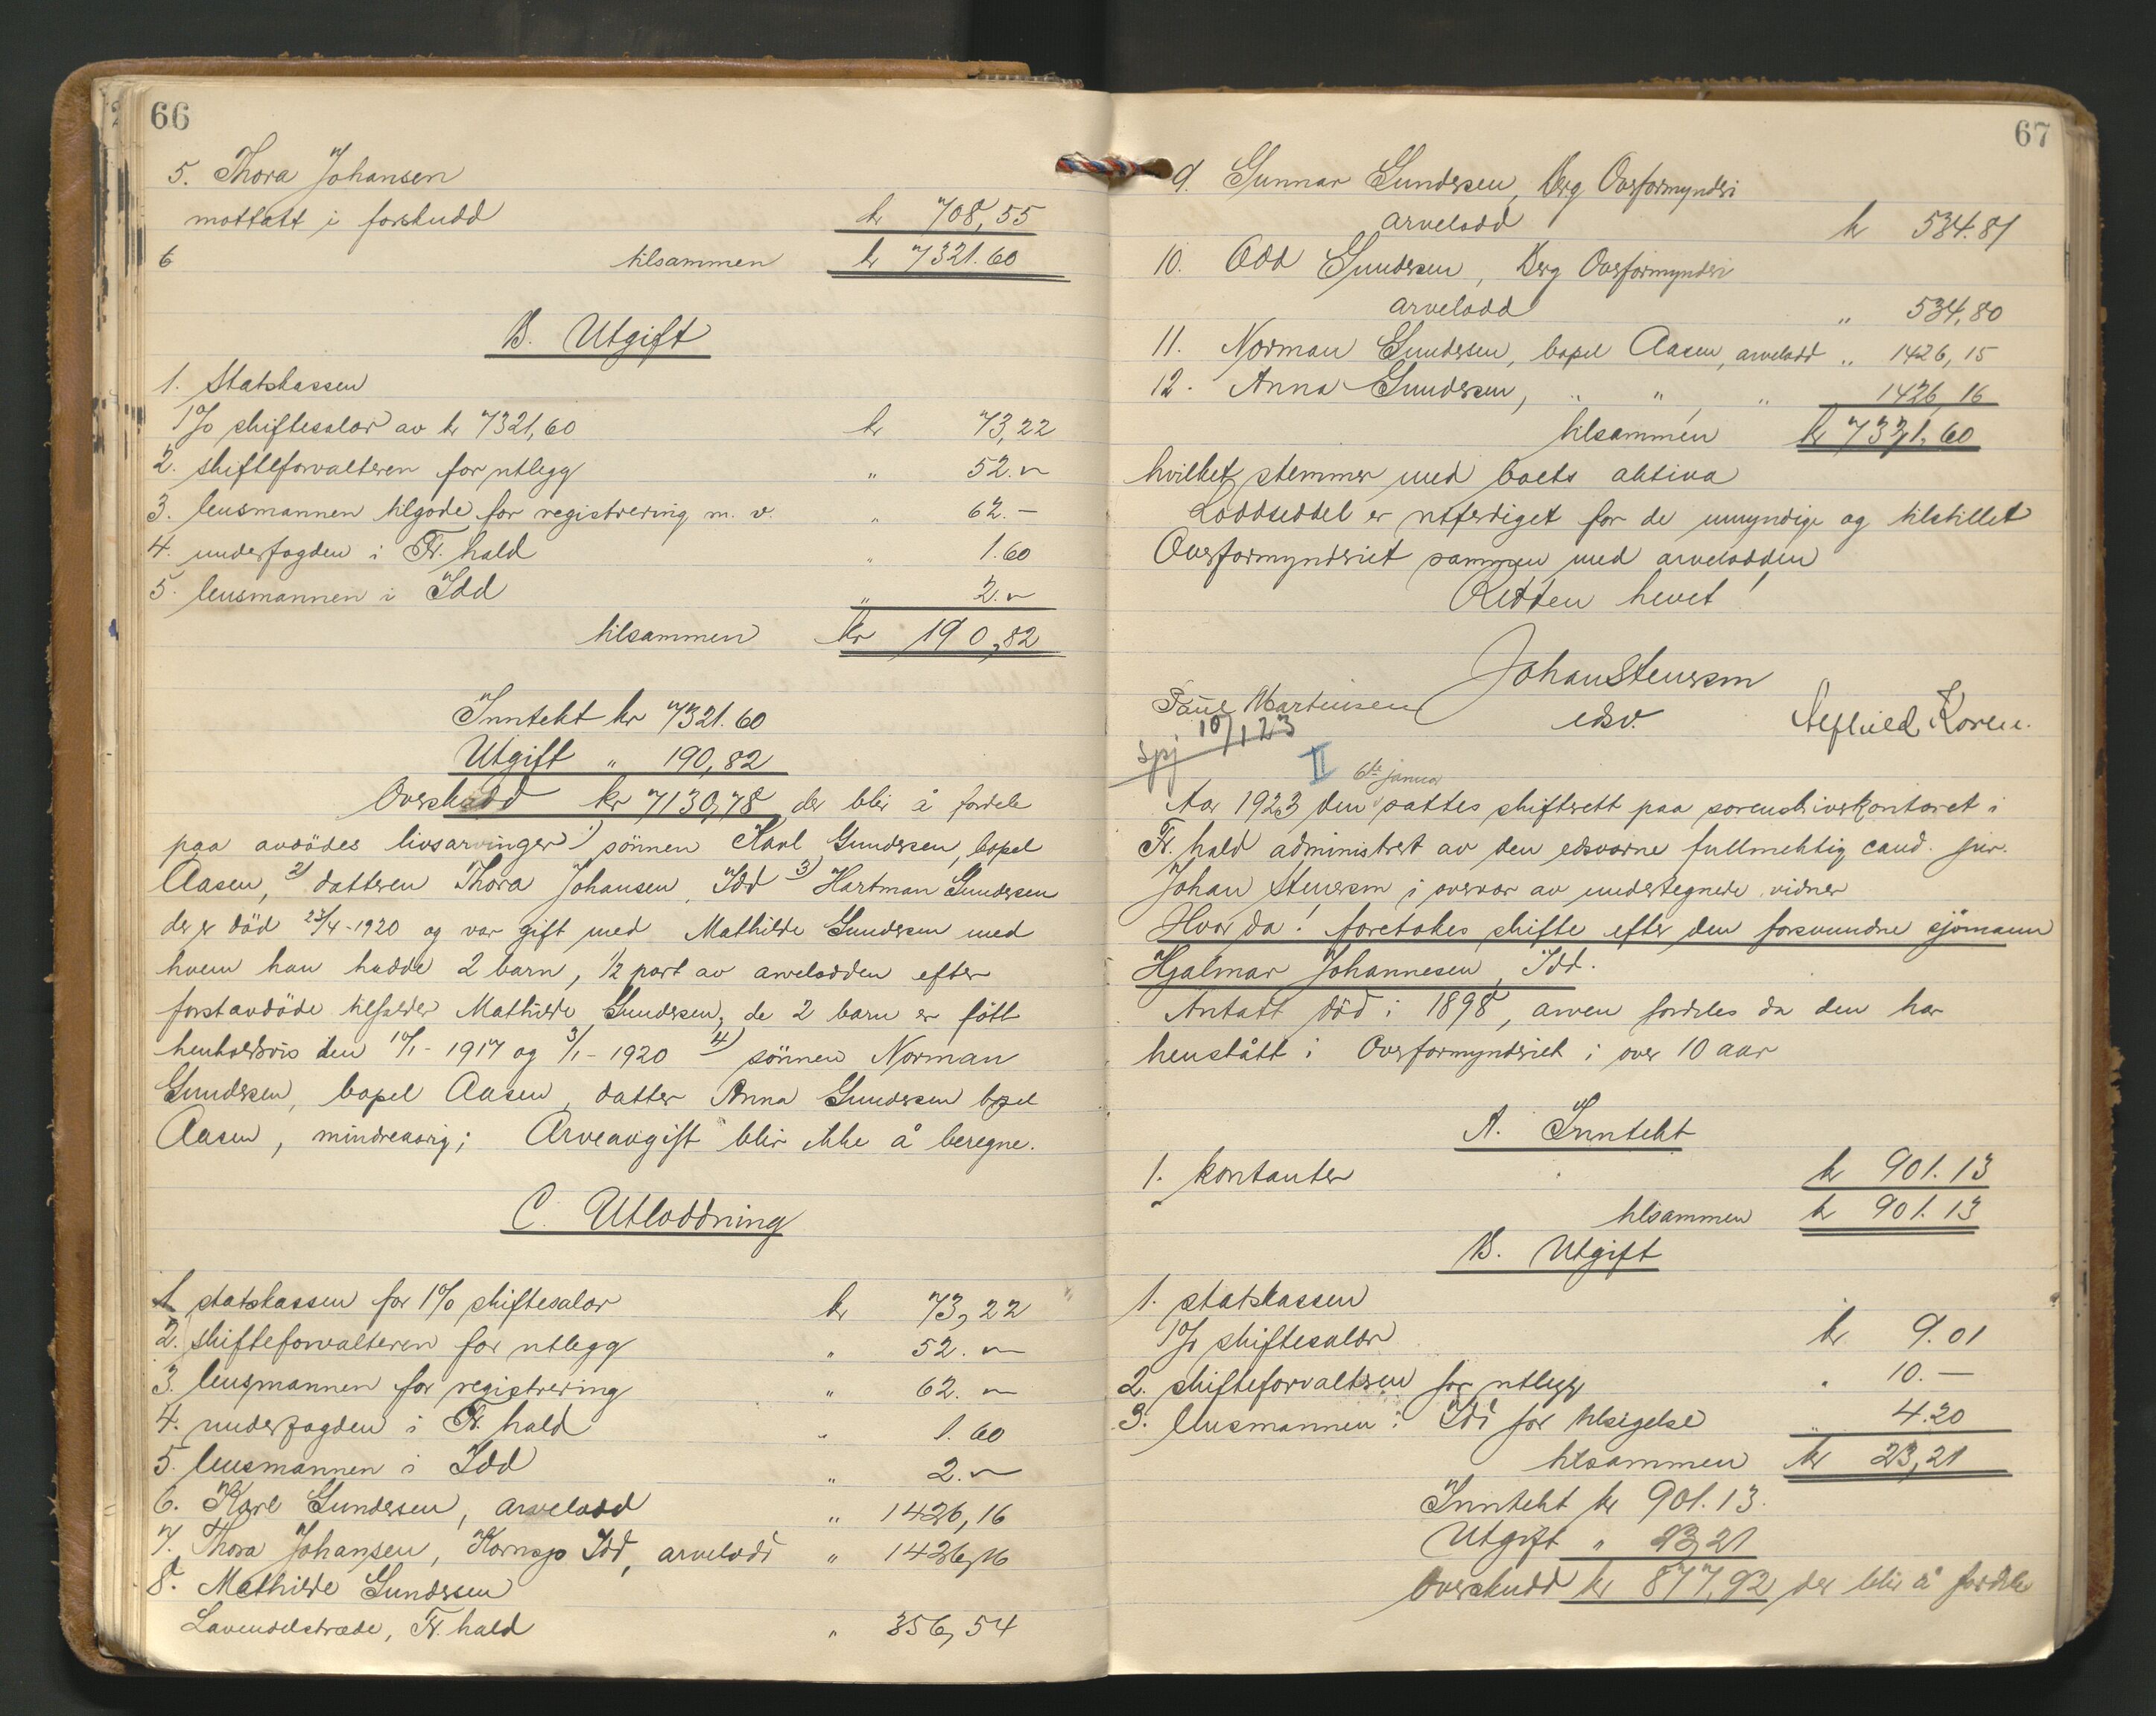 66
5. Thora Johansen
mottatt i forskudd kr 708,55
6 tilsammen kr 7321.60
B. Utgift
1. Statskassen
1% skiftesalær av kr 7321,60 kr 73,22
2. skifteforvalteren for utlegg " 52.-
3. lensmannen tilgode for registrering m. v. " 62.-
4. underfogden i Fr.hald " 1.60
5. lensmannen i Idd " 2.-
tilsammen kr 190,82
Inntekt kr 7321.60
Utgift " 190,82
Overskudd kr 7130,78 der blir å fordele
paa avdödes livsarvinger 1) sönnen Karl Gundersen, bopel
Aasen, 2) datteren Thora Johansen, Idd 3) Hartman Gundersen
der er död 23/4-1920 og var gift med Mathilde Gundersen med
hvem han hadde 2 barn, 1/2 part av arvelodden efter
forstavdöde tilfalder Mathilde Gundersen, de 2 barn er fött
henholdsvis den 17/1-1917 og 3/1-1920 4) sönnen Norman
Gundersen, bopel Aasen, datter Anna Gundersen bopel
Aasen, mindreaarig; Arveavgift blir ikke å beregne.
C. Utloddning
1. statskassen for 1% skiftesalær kr 73,22
2. skifteforvalteren for utlegg " 52.-
3. lensmannen for registrering " 62.-
4. underfogden i Fr.hald " 1.60
5. lensmannen i Idd " 2.-
6. Karl Gundersen, arvelodd " 1426,16
7. Thora Johansen, Kornsjø Idd, arvelodd " 1426,16
8. Mathilde Gundersen
Lavendelstræde, Fr.hald " 356,54
67
9. Gunnar Gundersen, Berg Overformynderi
arvelodd kr 534.81
10. Odd Gundersen, Berg Overformynderi
arvelodd " 534,80
11. Norman Gundersen, bopel Aasen, arvelodd " 1426,15
12. Anna Gundersen, " " " 1426,16
tilsammen kr 7321,60
hvilket stemmer med boets aktiva
Loddseddel er utferdiget for de umyndige og tilstillet
Overformynderiet sammen med arvelodden
Retten hevet!
Johan Stenersen
Paul Martinsen edsv. Alfhild Koren.
Spj 10/1 23
II
6te januar
Aar 1923 den sattes skifterett paa sorenskriverkontoret i
Fr.hald administrert av den edsvorne fullmektig cand. jur.
Johan Stenersen i overvær av undertegnede vidner
Hvorda! foretokes skifte efter den forsvundne sjömann
Hjalmar Johannesen, Idd.
Antatt död i 1898, arven fordeles da den har
henstått i Overformynderiet i over 10 aar
A. Inntekt
1. kontanter kr 901.13
tilsammen kr 901.13
B. Utgift
1. statskassen
1% skiftesalær kr 9.01
2. skifteforvalteren for utlegg " 10.-
3. lensmannen i Idd for tilsigelse " 4.20
tilsammen kr 23,21
Inntekt kr 901.13.
Utgift " 23,21
Overskudd kr 877,92 der blir å fordele